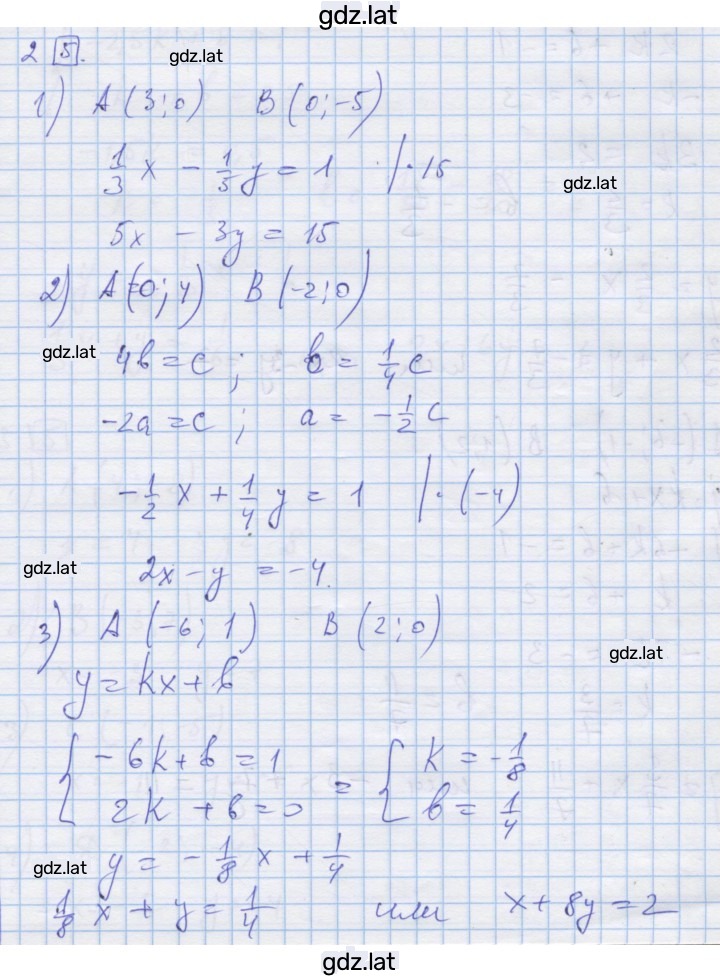 gdz.lat
2 5. gdz.lat
1) A (3; 0) B (0; -5)
1/3 x - 1/5 y = 1 /·15
gdz.lat
5x - 3y = 15
2) A (0; 4) B (-2; 0)
gdz.lat 4b = c ; b = 1/4 c
-2a = c ; a = -1/2 c
-1/2 x + 1/4 y = 1 |·(-4)
gdz.lat 2x - y = -4.
3) A (-6; 1) B (2; 0)
gdz.lat
y = kx + b
{ -6k + b = 1 = { k = -1/8
2k + b = 0 b = 1/4
gdz.lat y = -1/8 x + 1/4
1/8 x + y = 1/4 или x + 8y = 2
gdz.lat